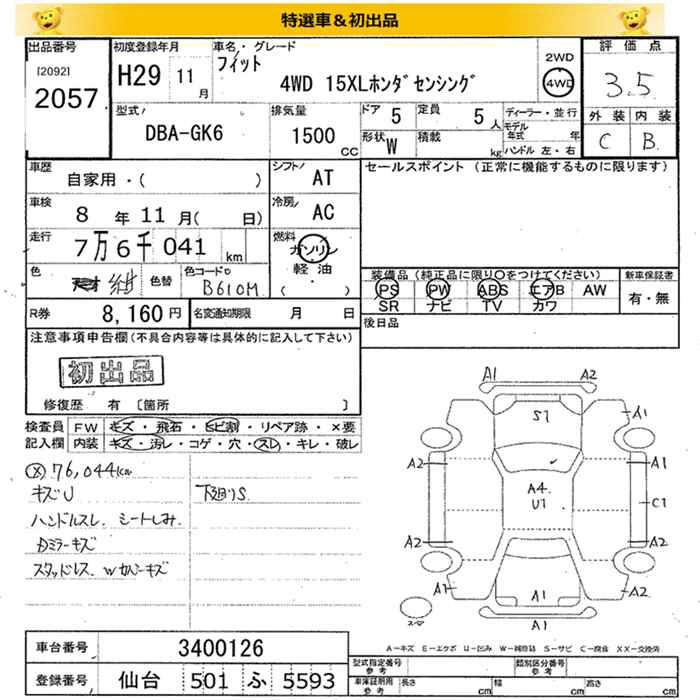 特選車&初出品
出品番号 [2092] 2057
初度登録年月 H29 11 月
車名・グレード フィット 4WD 15XLホンダセンシング
2WD 4WD
評価点 3.5
外装 内装
C B
型式 DBA-GK6
排気量 1500 cc
ドア 5 定員 5 人
形状 W 積載 kg
ディーラー・並行
モデル年式 年
ハンドル 左・右
車歴 自家用・( )
シフト AT
セールスポイント (正常に機能するものに限ります)
車検 8 年 11 月( 日)
冷房 AC
走行 7万6千041 km
燃料 ガソリン 軽油 ( )
色 紺 色替 色コードNo B610M
装備品(純正品に限り○をつけてください)
PS PW ABS エアB AW
SR ナビ TV カワ
新車保証書 有・無
R券 8,160 円
名変通知期限 月 日
後日品
注意事項申告欄(不具合内容等は具体的に記入して下さい)
初出品
修復歴 有 [箇所 ]
検査員記入欄
FW キズ・飛石・ヒビ割・リペア跡・×要
内装 キズ・汚レ・コゲ・穴・スレ・キレ・破レ
Ⓧ 76,044km
キズU 下廻りS
ハンドルスレ. シートしみ.
Dミラーキズ
スタッドレス. wカバーキズ
A1 A2
S1 A1
A2 A1
A4 U1 C1
A2 A2
A1 A1 A2
A1
A-キズ E-エクボ U-凹み W-補修跡 S-サビ C-腐食 XX-交換済
車台番号 3400126
登録番号 仙台 501 ふ 5593
型式指定番号 参考 類別区分番号 参考
車庫証明用 参考 長さ cm 幅 cm 高さ cm